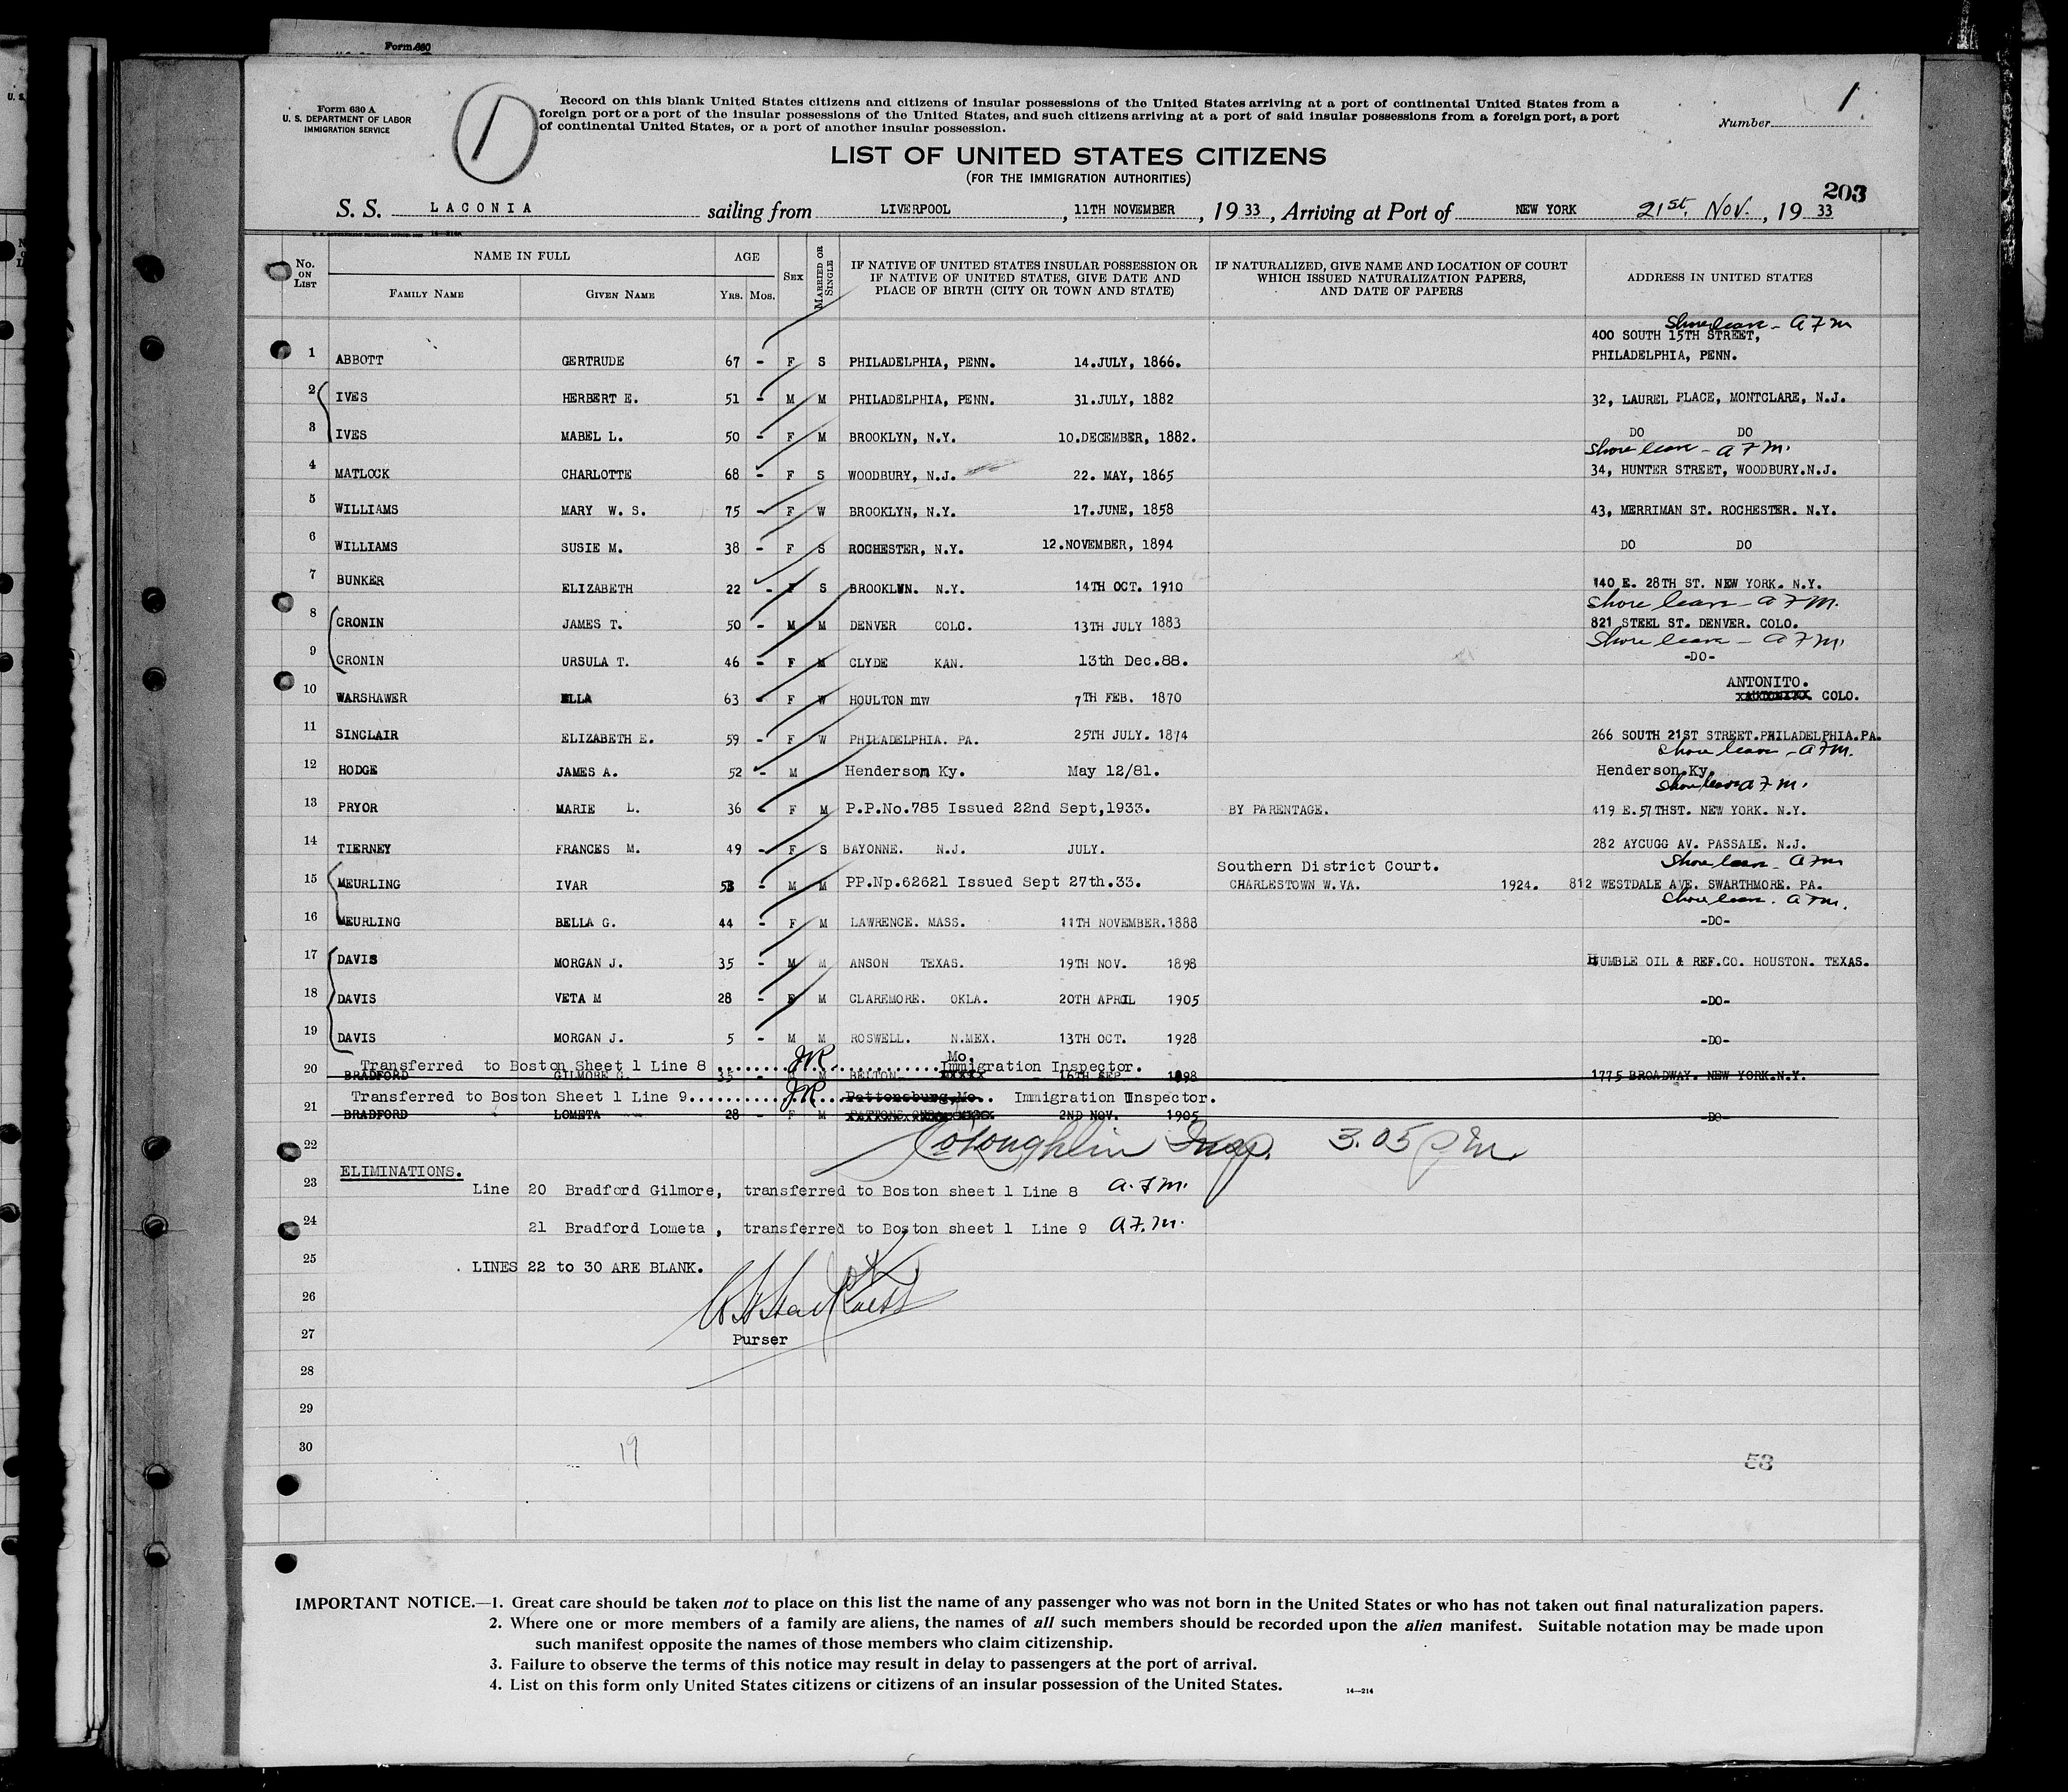 Form 630
Form 630 A
U. S. DEPARTMENT OF LABOR
IMMIGRATION SERVICE
1
Record on this blank United States citizens and citizens of insular possessions of the United States arriving at a port of continental United States from a
foreign port or a port of the insular possessions of the United States, and such citizens arriving at a port of said insular possessions from a foreign port, a port
of continental United States, or a port of another insular possession.
Number 1
LIST OF UNITED STATES CITIZENS
(FOR THE IMMIGRATION AUTHORITIES)
203
S. S. LACONIA sailing from LIVERPOOL, 11TH NOVEMBER, 19 33, Arriving at Port of NEW YORK 21st. Nov., 19 33
No. ON LIST
NAME IN FULL
FAMILY NAME GIVEN NAME
AGE
YRS. MOS.
SEX
MARRIED OR SINGLE
IF NATIVE OF UNITED STATES INSULAR POSSESSION OR
IF NATIVE OF UNITED STATES, GIVE DATE AND
PLACE OF BIRTH (CITY OR TOWN AND STATE)
IF NATURALIZED, GIVE NAME AND LOCATION OF COURT
WHICH ISSUED NATURALIZATION PAPERS,
AND DATE OF PAPERS
ADDRESS IN UNITED STATES
Shore leave - A F M
400 SOUTH 15TH STREET,
1 ABBOTT GERTRUDE 67 - F S PHILADELPHIA, PENN. 14.JULY, 1866. PHILADELPHIA, PENN.
2 IVES HERBERT E. 51 - M M PHILADELPHIA, PENN. 31.JULY, 1882 32, LAUREL PLACE, MONTCLARE, N.J.
3 IVES MABEL L. 50 - F M BROOKLYN, N.Y. 10.DECEMBER, 1882. DO DO
Shore leave - A F M.
4 MATLOCK CHARLOTTE 68 - F S WOODBURY, N.J. 22. MAY, 1865 34, HUNTER STREET, WOODBURY.N.J.
5 WILLIAMS MARY W. S. 75 - F W BROOKLYN, N.Y. 17.JUNE, 1858 43, MERRIMAN ST. ROCHESTER. N.Y.
6 WILLIAMS SUSIE M. 38 - F S ROCHESTER, N.Y. 12.NOVEMBER, 1894 DO DO
7 BUNKER ELIZABETH 22 - F S BROOKLWN. N.Y. 14TH OCT. 1910 140 E. 28TH ST. NEW YORK. N.Y.
Shore leave - A F M.
8 CRONIN JAMES T. 50 - M M DENVER COLO. 13TH JULY 1883 821 STEEL ST. DENVER. COLO.
Shore leave - A F M.
9 CRONIN URSULA T. 46 - F M CLYDE KAN. 13th Dec.88. -DO-
ANTONITO.
10 WARSHAWER ELLA 63 - F W HOULTON mw 7TH FEB. 1870 COLO.
11 SINCLAIR ELIZABETH E. 59 - F W PHILADELPHIA. PA. 25TH JULY. 1874 266 SOUTH 21ST STREET.PHILADELPHIA.PA.
Shore leave - A F M.
12 HODGE JAMES A. 52 - M Henderson Ky. May 12/81. Henderson.Ky
Shore leave A F M.
13 PRYOR MARIE L. 36 - F M P.P.No.785 Issued 22nd Sept,1933. BY PARENTAGE. 419 E.57THST. NEW YORK. N.Y.
14 TIERNEY FRANCES M. 49 - F S BAYONNE. N.J. JULY. 282 AYCUGG AV. PASSAIE. N.J.
Southern District Court. Shore leave - A F M
15 MEURLING IVAR 53 - M M PP.Np.62621 Issued Sept 27th.33. CHARLESTOWN W.VA. 1924. 812 WESTDALE AVE. SWARTHMORE. PA.
Shore leave. A F M.
16 MEURLING BELLA G. 44 - F M LAWRENCE. MASS. 11TH NOVEMBER.1888 -DO-
17 DAVIS MORGAN J. 35 - M M ANSON TEXAS. 19TH NOV. 1898 HUMBLE OIL & REF.CO. HOUSTON. TEXAS.
18 DAVIS VETA M 28 - F M CLAREMORE. OKLA. 20TH APRIL 1905 -DO-
19 DAVIS MORGAN J. 5 - M M ROSWELL. N.MEX. 13TH OCT. 1928 -DO-
Mo.
Transferred to Boston Sheet 1 Line 8 ........JR............Immigration Inspector.
20 BRADFORD GILMORE G. 35 - M M BELTON 16TH SEP 1898 1775 BROADWAY. NEW YORK.N.Y.
Transferred to Boston Sheet 1 Line 9...........JR...Pattonsburg,Mo.. Immigration Inspector.
21 BRADFORD LOMETA 28 - F M 2ND NOV. 1905 -DO-
22 Coloughlin Insp. 3.05 pm.
ELIMINATIONS.
23 Line 20 Bradford Gilmore, transferred to Boston sheet 1 Line 8 A.F.M.
24 21 Bradford Lometa , transferred to Boston sheet 1 Line 9 A F. M.
25 LINES 22 to 30 ARE BLANK.
26
27 Purser
28
29
30 19
53
IMPORTANT NOTICE.—1. Great care should be taken not to place on this list the name of any passenger who was not born in the United States or who has not taken out final naturalization papers.
2. Where one or more members of a family are aliens, the names of all such members should be recorded upon the alien manifest. Suitable notation may be made upon
such manifest opposite the names of those members who claim citizenship.
3. Failure to observe the terms of this notice may result in delay to passengers at the port of arrival.
4. List on this form only United States citizens or citizens of an insular possession of the United States.
14—214